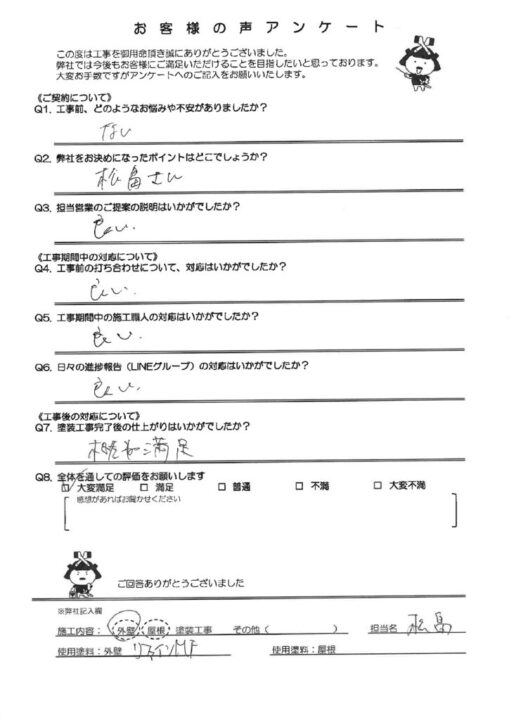 お客様の声アンケート
この度は工事を御用命頂き誠にありがとうございました。
弊社では今後もお客様にご満足いただけることを目指したいと思っております。
大変お手数ですがアンケートへのご記入をお願いいたします。
《ご契約について》
Q1. 工事前、どのようなお悩みや不安がありましたか？
ない
Q2. 弊社をお決めになったポイントはどこでしょうか？
松畠さん
Q3. 担当営業のご提案の説明はいかがでしたか？
良い.
《工事期間中の対応について》
Q4. 工事前の打ち合わせについて、対応はいかがでしたか？
良い.
Q5. 工事期間中の施工職人の対応はいかがでしたか？
良い.
Q6. 日々の進捗報告（LINEグループ）の対応はいかがでしたか？
良い.
《工事後の対応について》
Q7. 塗装工事完了後の仕上がりはいかがでしたか？
満足
Q8. 全体を通しての評価をお願いします
☑ 大変満足 □ 満足 □ 普通 □ 不満 □ 大変不満
感想があればお聞かせください
ご回答ありがとうございました
※弊社記入欄
施工内容： 外壁 ・ 屋根 塗装工事 その他（ ） 担当名 松畠
使用塗料：外壁 リファインMF 使用塗料：屋根